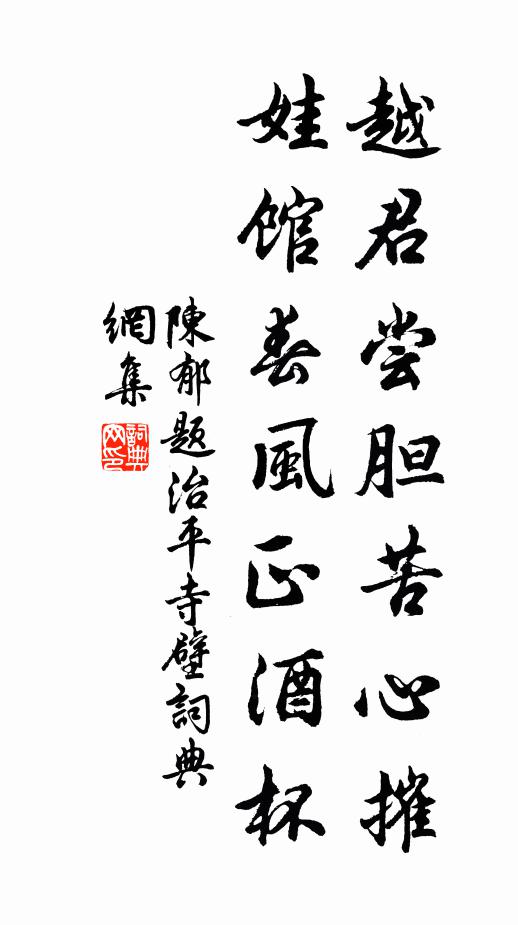 越君尝胆苦心摧
娃馆春風正酒杯
陳郁题治平寺壁詞典
網集
詞典
网印